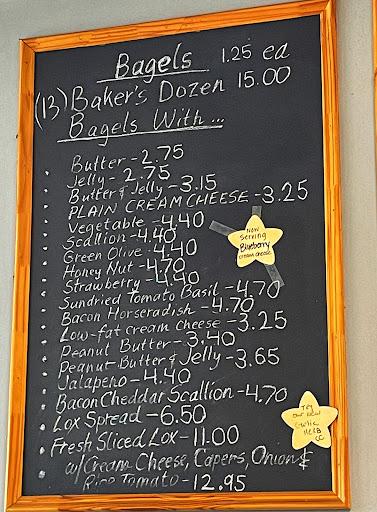 Bagels 1.25 ea
(13) Baker's Dozen 15.00
Bagels With...
Butter - 2.75
Jelly - 2.75
Butter & Jelly - 3.15
PLAIN CREAM CHEESE - 3.25
Vegetable - 4.40
Scallion - 4.40
Green Olive - 4.40
Honey Nut - 4.70
Strawberry - 4.40
Sundried Tomato Basil - 4.70
Bacon Horseradish - 4.70
Low-fat cream cheese - 3.25
Peanut Butter - 3.40
Peanut Butter & Jelly - 3.65
Jalapeno - 4.40
Bacon Cheddar Scallion - 4.70
Lox Spread - 6.50
Fresh Sliced Lox - 11.00
w/ Cream Cheese, Capers, Onion &
Rice Tomato - 12.95
Now
Serving
Blueberry
cream cheese
Try
Our New
Garlic
Herb
CC